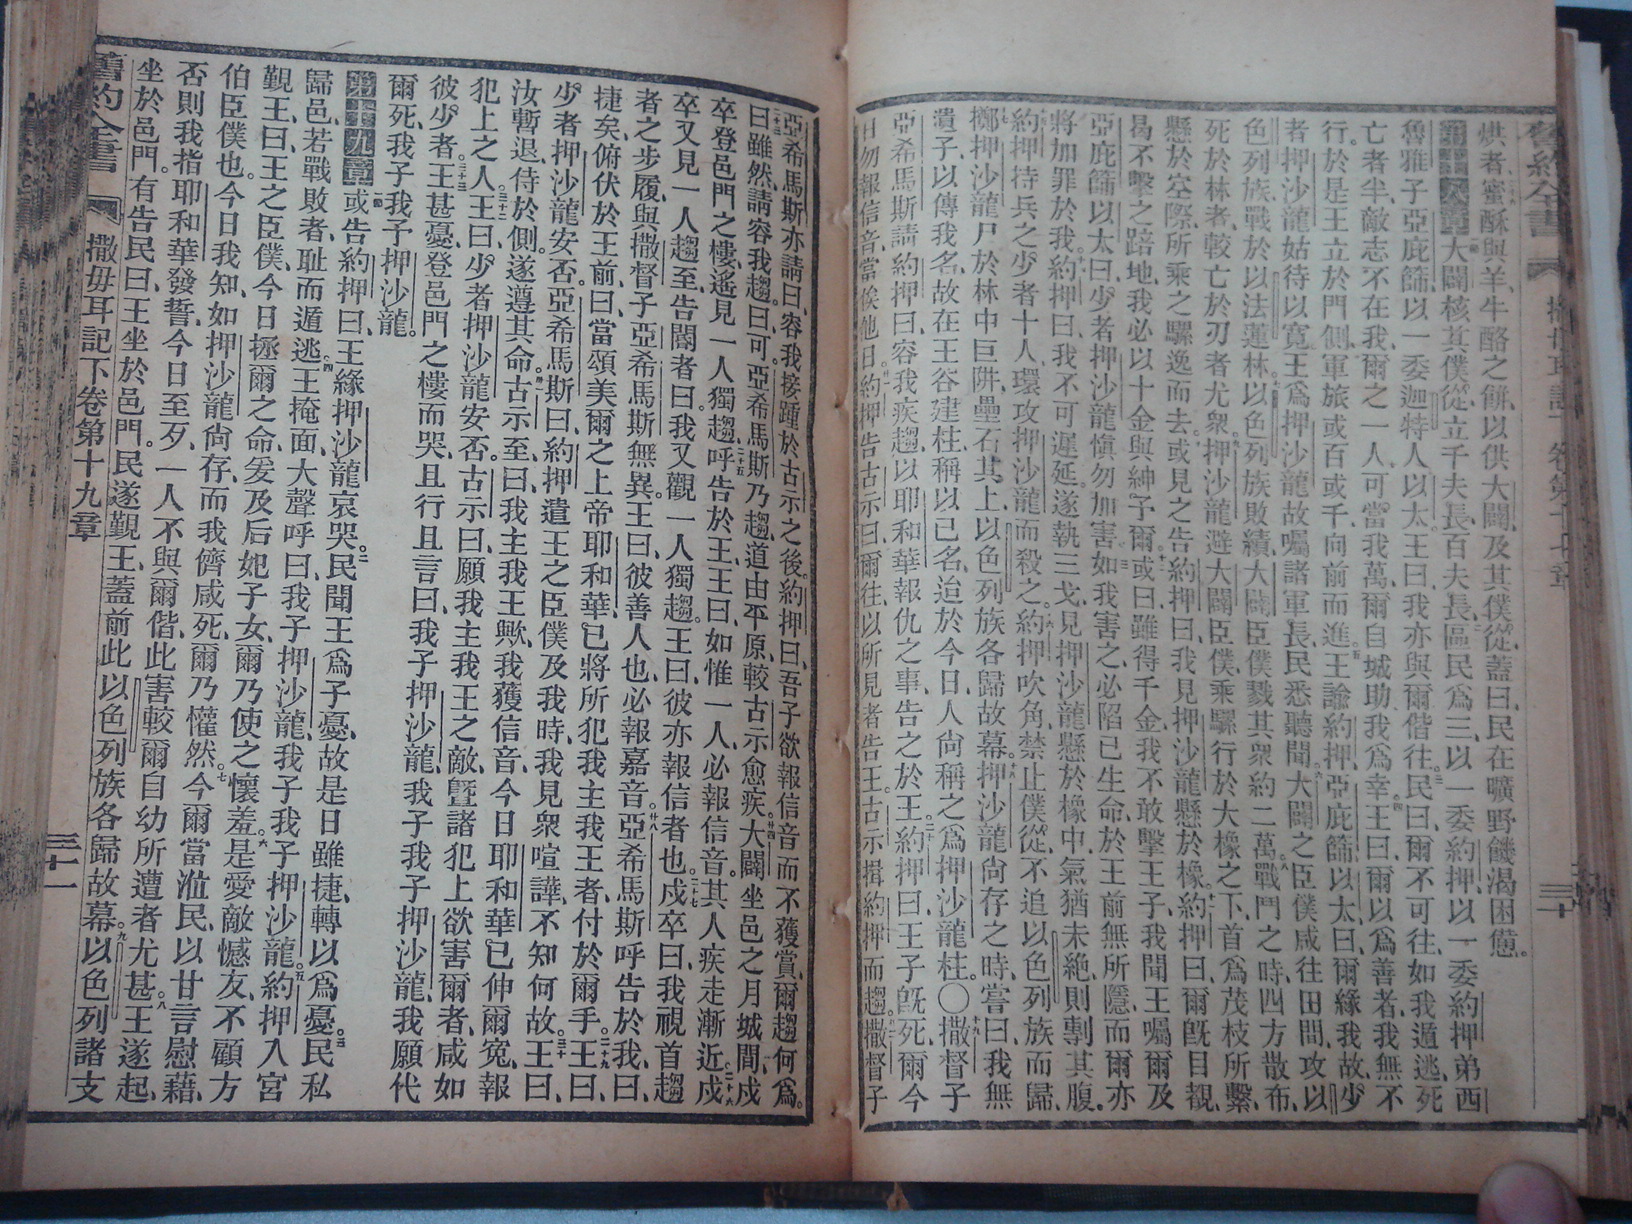 舊約全書
烘者蜜酥與羊牛酪之餅、以供大闢、及其僕從、蓋曰、民在曠野、饑渴困憊。
第十八章大闢核其僕從、立千夫長、百夫長、區民爲三、以一委約押、以一委約押弟西
魯雅子亞庇篩、以一委迦特人以太、王曰、我亦與爾偕往、民曰、爾不可往、如我遁逃、死
亡者半、敵志不在我、爾之一人、可當我萬、爾自城助我爲幸、王曰、爾以爲善者、我無不
行、於是王立於門側、軍旅或百或千、向前而進、王諭約押、亞庇篩、以太曰、爾緣我故、少
者押沙龍、姑待以寬、王爲押沙龍故、囑諸軍長、民悉聽聞、大闢之臣僕、咸往田間、攻以
色列族、戰於以法蓮林、以色列族敗績、大闢臣僕戮其衆約二萬、戰鬥之時、四方散布、
死於林者、較亡於刃者尤衆、押沙龍避大闢臣僕、乘騾行於大橡之下、首爲茂枝所繫、
懸於空際、所乘之騾逸而去、或見之告約押曰、我見押沙龍懸於橡、約押曰、爾旣目覩、
曷不擊之踣地、我必以十金與紳予爾、或曰、雖得千金、我不敢擊王子、我聞王囑爾、及
亞庇篩、以太曰、少者押沙龍、愼勿加害、如我害之、必陷已生命、於王前無所隱、而爾亦
將加罪於我、約押曰、我不可遲延、遂執三戈、見押沙龍懸於橡中、氣猶未絶、則剸其腹、
約押持兵之少者十人、環攻押沙龍而殺之、約押吹角、禁止僕從、不追以色列族而歸、
擲押沙龍尸於林中巨阱、壘石其上、以色列族各歸故幕、押沙龍尙存之時、嘗曰、我無
遺子、以傳我名、故在王谷建柱、稱以己名、迨於今日、人尙稱之爲押沙龍柱、〇撒督子
亞希馬斯請約押曰、容我疾趨、以耶和華報仇之事、告之於王、約押曰、王子旣死、爾今
日勿報信音、當俟他日、約押告古示曰、爾往、以所見者告王、古示揖約押而趨、撒督子
三十
亞希馬斯亦請曰、容我接踵於古示之後、約押曰、吾子欲報信音、而不獲賞、爾趨何爲、
曰、雖然、請容我趨、曰可、亞希馬斯乃趨、道由平原、較古示愈疾、大闢坐邑之月城間、戍
卒登邑門之樓、遙見一人獨趨、呼告於王、王曰、如惟一人、必報信音、其人疾走漸近、戍
卒又見一人趨至、告閽者曰、我又觀一人獨趨、王曰、彼亦報信者也、戍卒曰、我視首趨
者之步履、與撒督子亞希馬斯無異、王曰、彼善人也、必報嘉音、亞希馬斯呼告於我、曰
捷矣、俯伏於王前、曰、當頌美爾之上帝耶和華、已將所犯我主我王者、付於爾手、王曰、
少者押沙龍安否、亞希馬斯曰、約押遣王之臣僕及我時、我見衆喧譁、不知何故、王曰、
汝暫退、侍於側、遂遵其命、古示至、曰、我主我王歟、我獲信音、今日耶和華已伸爾寃、報
犯上之人、王曰、少者押沙龍安否、古示曰、願我主我王之敵、曁諸犯上欲害爾者、咸如
彼少者、王甚憂、登邑門之樓而哭、且行且言曰、我子押沙龍、我子我子押沙龍、我願代
爾死、我子我子押沙龍。
第十九章或告約押曰、王緣押沙龍哀哭、民聞王爲子憂、故是日雖捷、轉以爲憂、民私
歸邑、若戰敗者、耻而遁逃、王掩面、大聲呼曰、我子押沙龍、我子我子押沙龍、約押入宮
覲王、曰、王之臣僕、今日拯爾之命、爰及后妃子女、爾乃使之懷羞、是愛敵憾友、不顧方
伯臣僕也、今日我知、如押沙龍尙存、而我儕咸死、爾乃懽然、今爾當涖民、以甘言慰藉、
否則我指耶和華發誓、今日至歹、一人不與爾偕、此害較爾自幼所遭者尤甚、王遂起、
坐於邑門、有告民曰、王坐於邑門、民遂覲王、蓋前此以色列族各歸故幕、以色列諸支
舊約全書 撒母耳記下卷第十九章 三十一